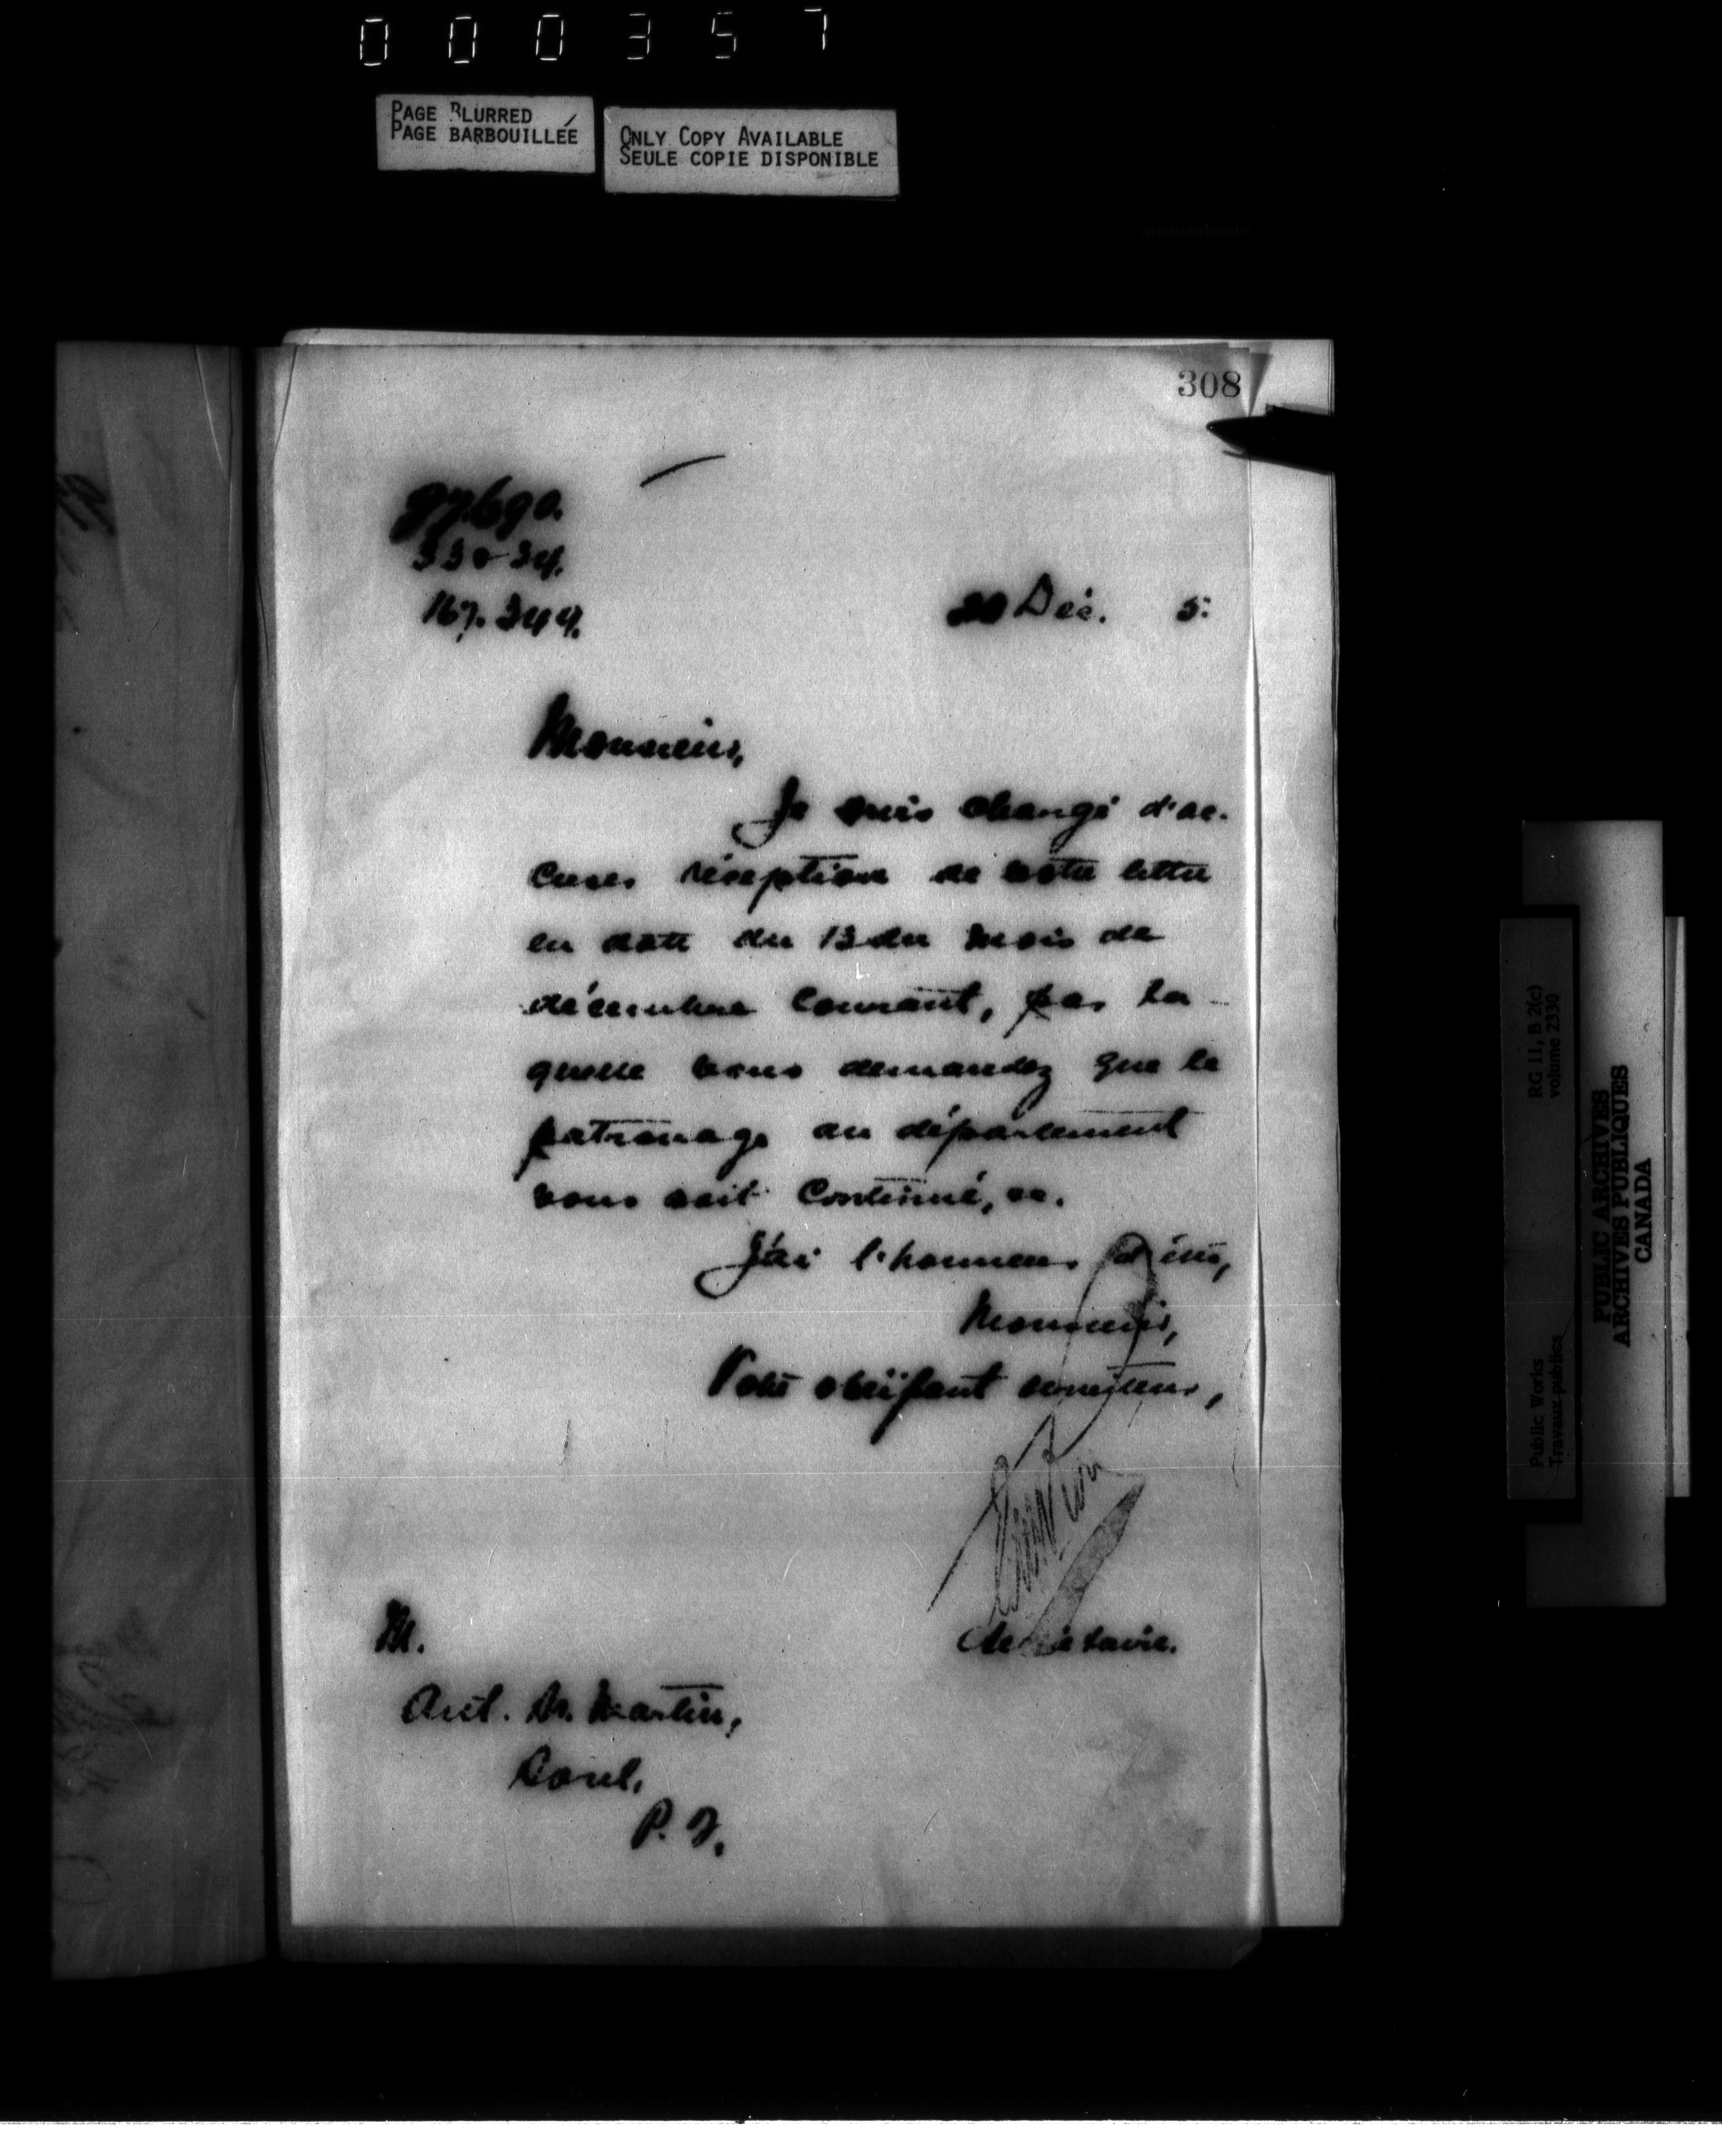 000357
PAGE BLURRED
PAGE BARBOUILLÉE
ONLY COPY AVAILABLE
SEULE COPIE DISPONIBLE
308
97690.
330-34.
167.344.
20 Déc. 5.
Monsieur,
Je suis chargé d'ac-
cuser réception de votre lettre
en date du 13 du mois de
décembre courant, par la-
quelle vous demandez que le
patronage du département
vous soit continué, &c.
J'ai l'honneur d'être,
Monsieur,
Votre obéissant serviteur,
Secrétaire.
M.
Art. M. Martin,
Sorel,
P. Q.
RG 11, B 2(c)
volume 2330
Public Works
Travaux publics
PUBLIC ARCHIVES
ARCHIVES PUBLIQUES
CANADA